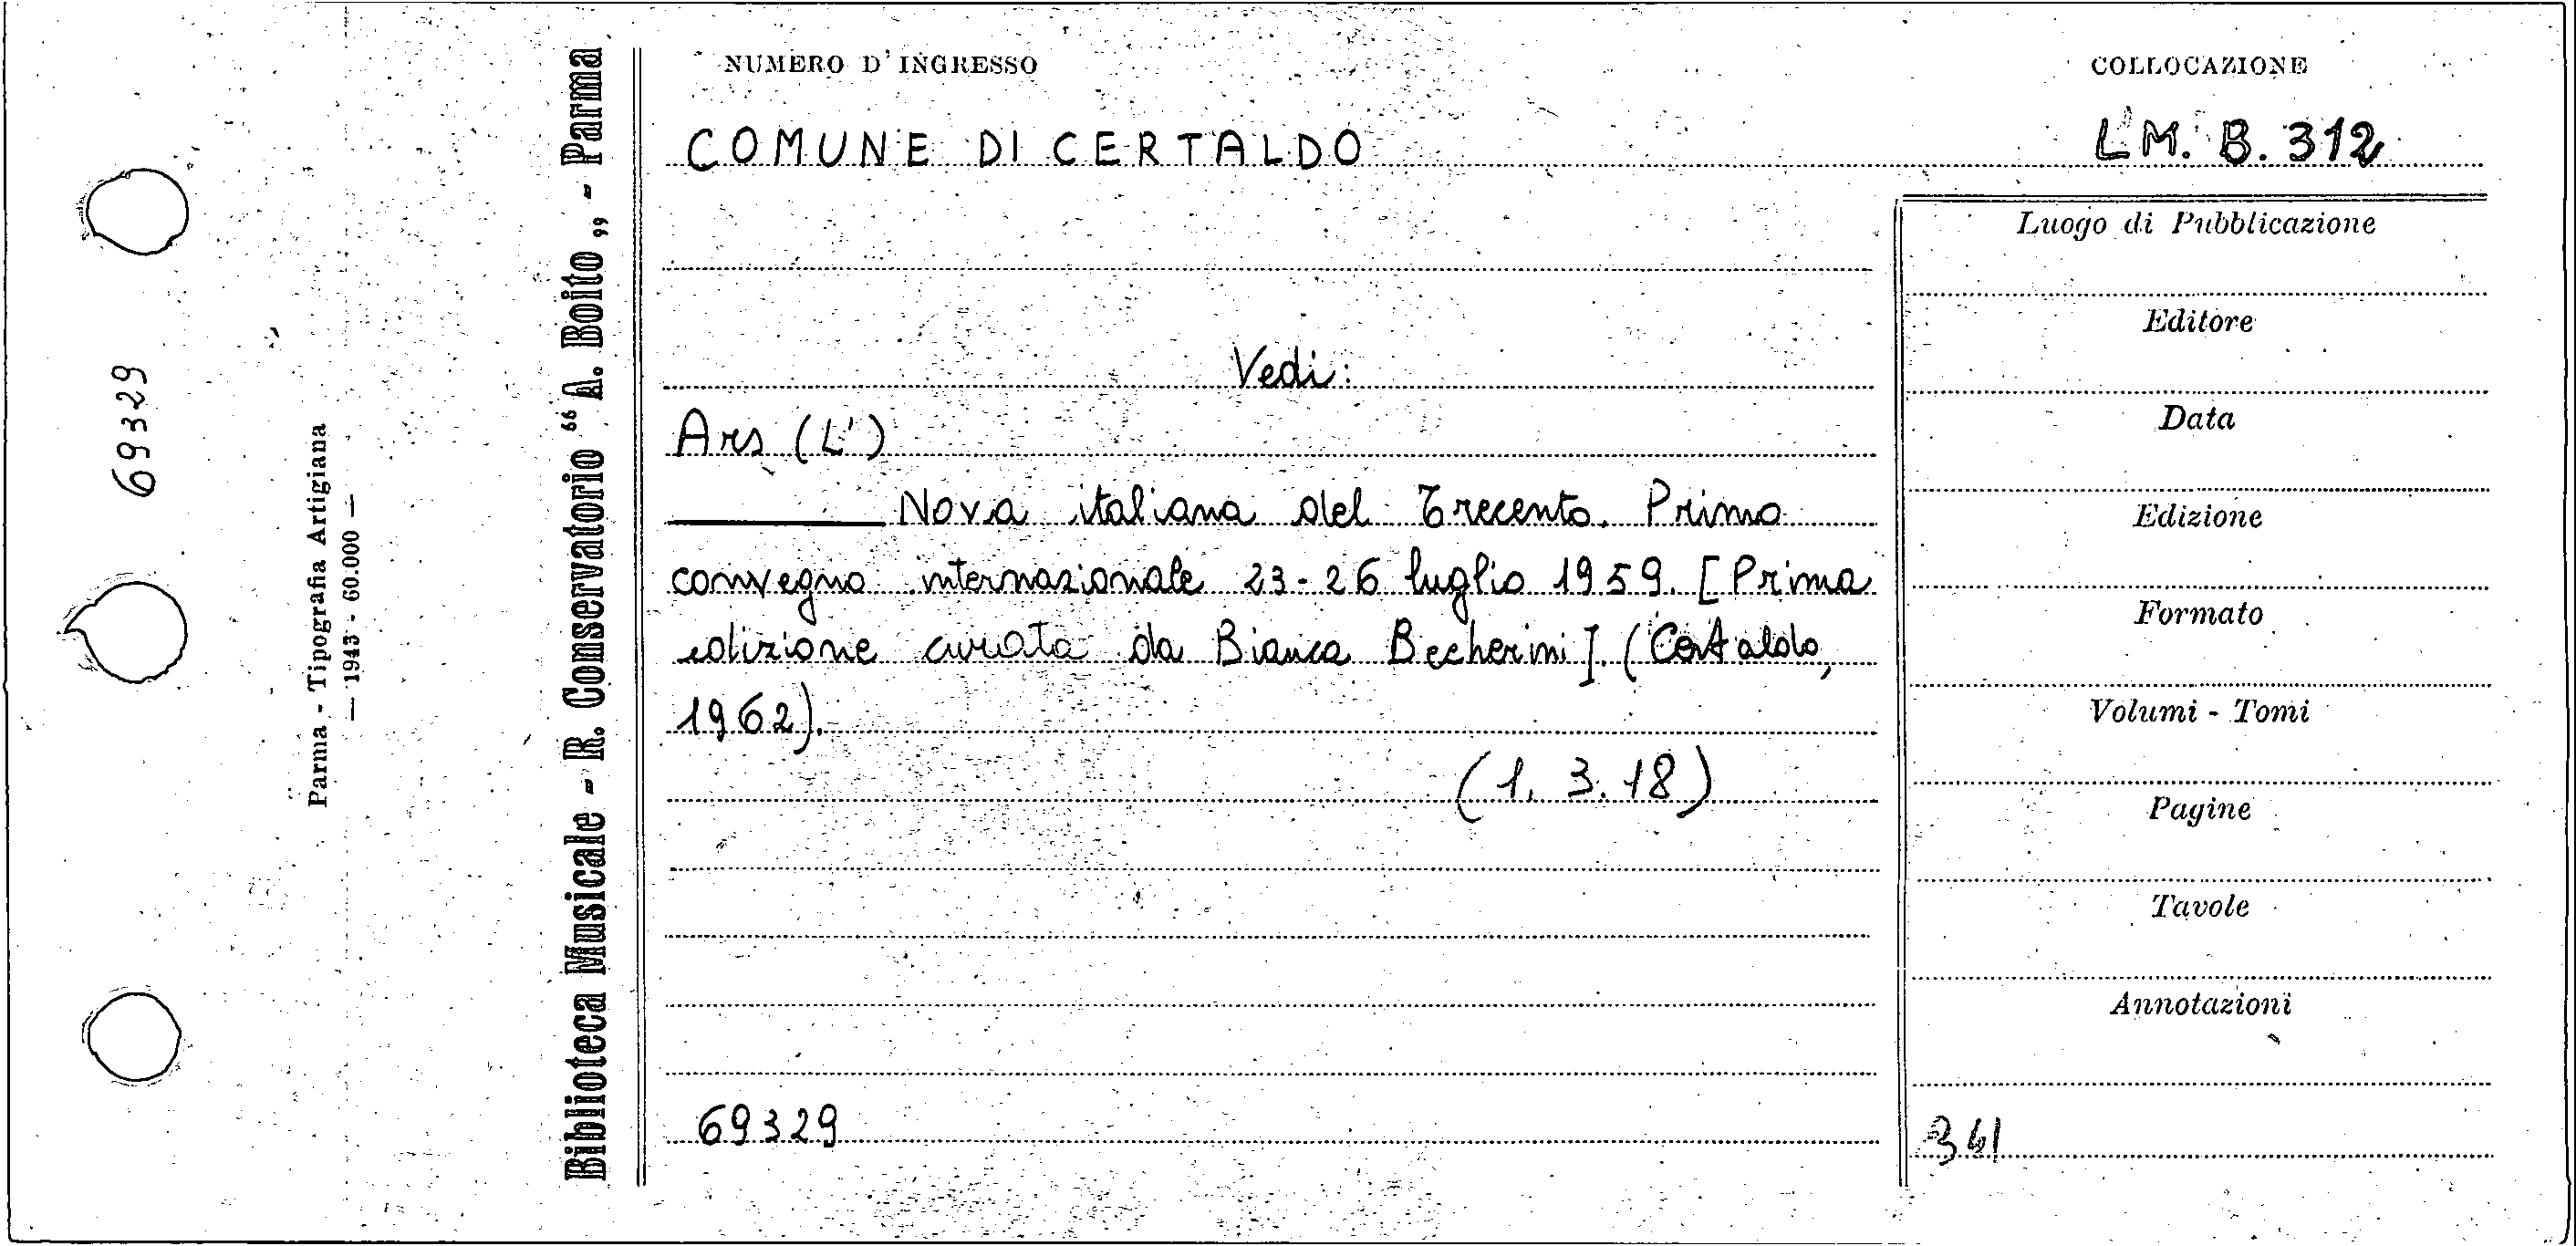 69329
Parma - Tipografia Artigiana
— 1943 - 60.000 —
Biblioteca Musicale - R. Conservatorio “A. Boito„ - Parma
NUMERO D'INGRESSO
COLLOCAZIONE
COMUNE DI CERTALDO
L.M. B. 312
Vedi:
Ars (L')
——— Nova italiana del Trecento. Primo
convegno internazionale 23-26 luglio 1959. [Prima
edizione curata da Bianca Becherini]. (Certaldo,
1962).
(1. 3. 18)
69329
Luogo di Pubblicazione
Editore
Data
Edizione
Formato
Volumi - Tomi
Pagine
Tavole
Annotazioni
341